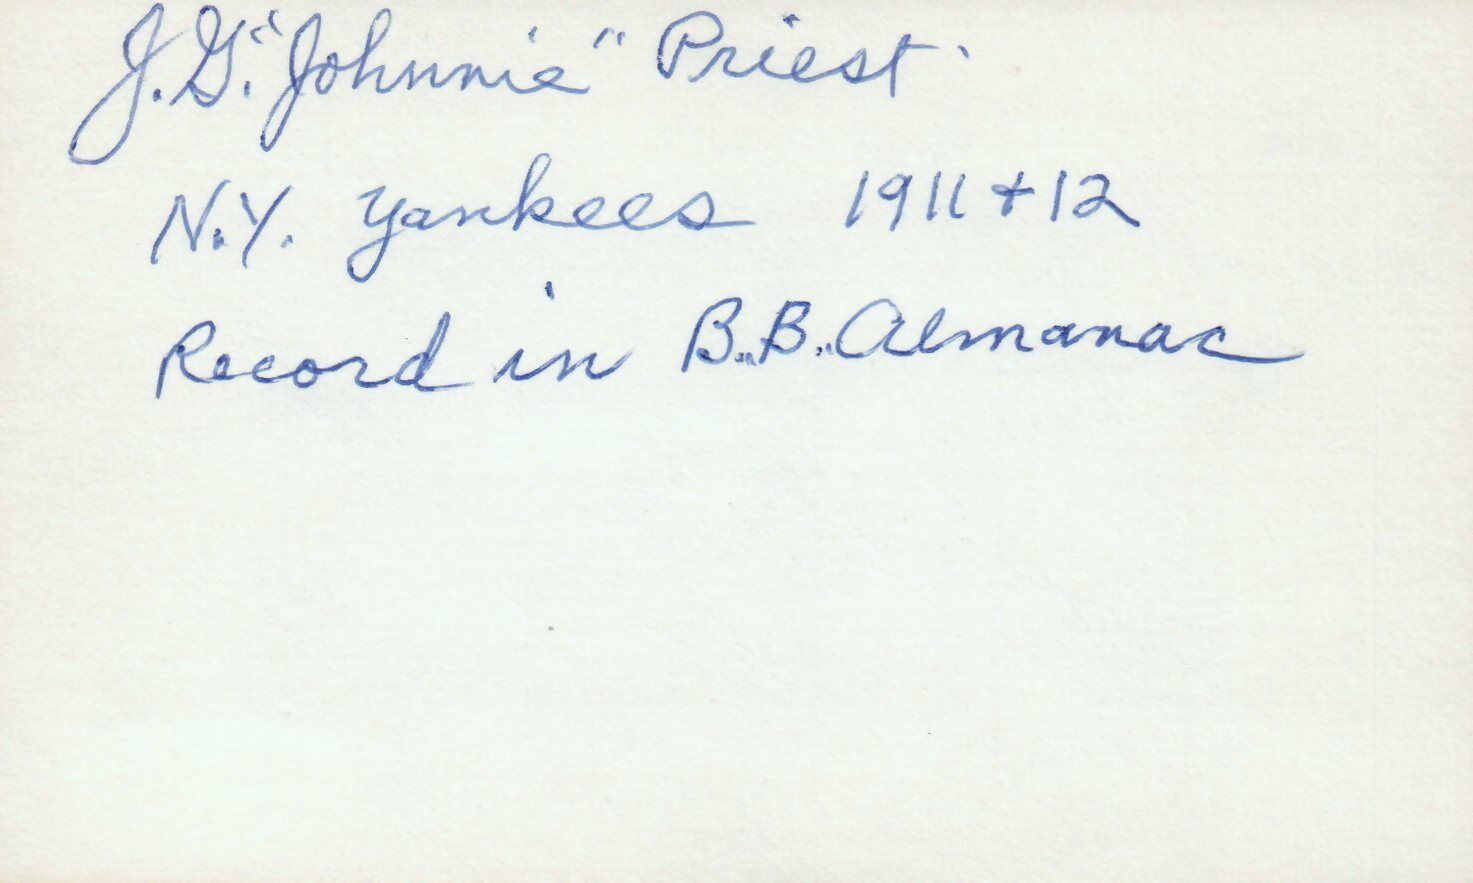 J.G. "Johnnie" Priest
N.Y. Yankees 1911 + 12
Record in B.B. Almanac